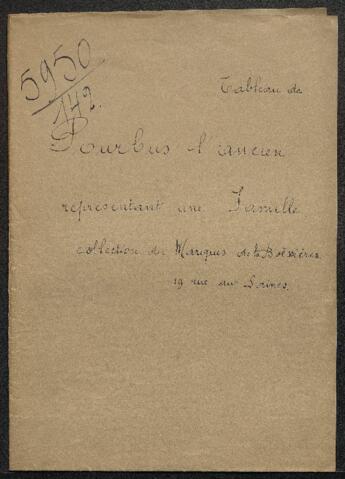 5950
142.
Tableau de
Pourbus l'ancien
représentant une Famille
collection du Marquis de la Boëssière
19 rue aux Laines.